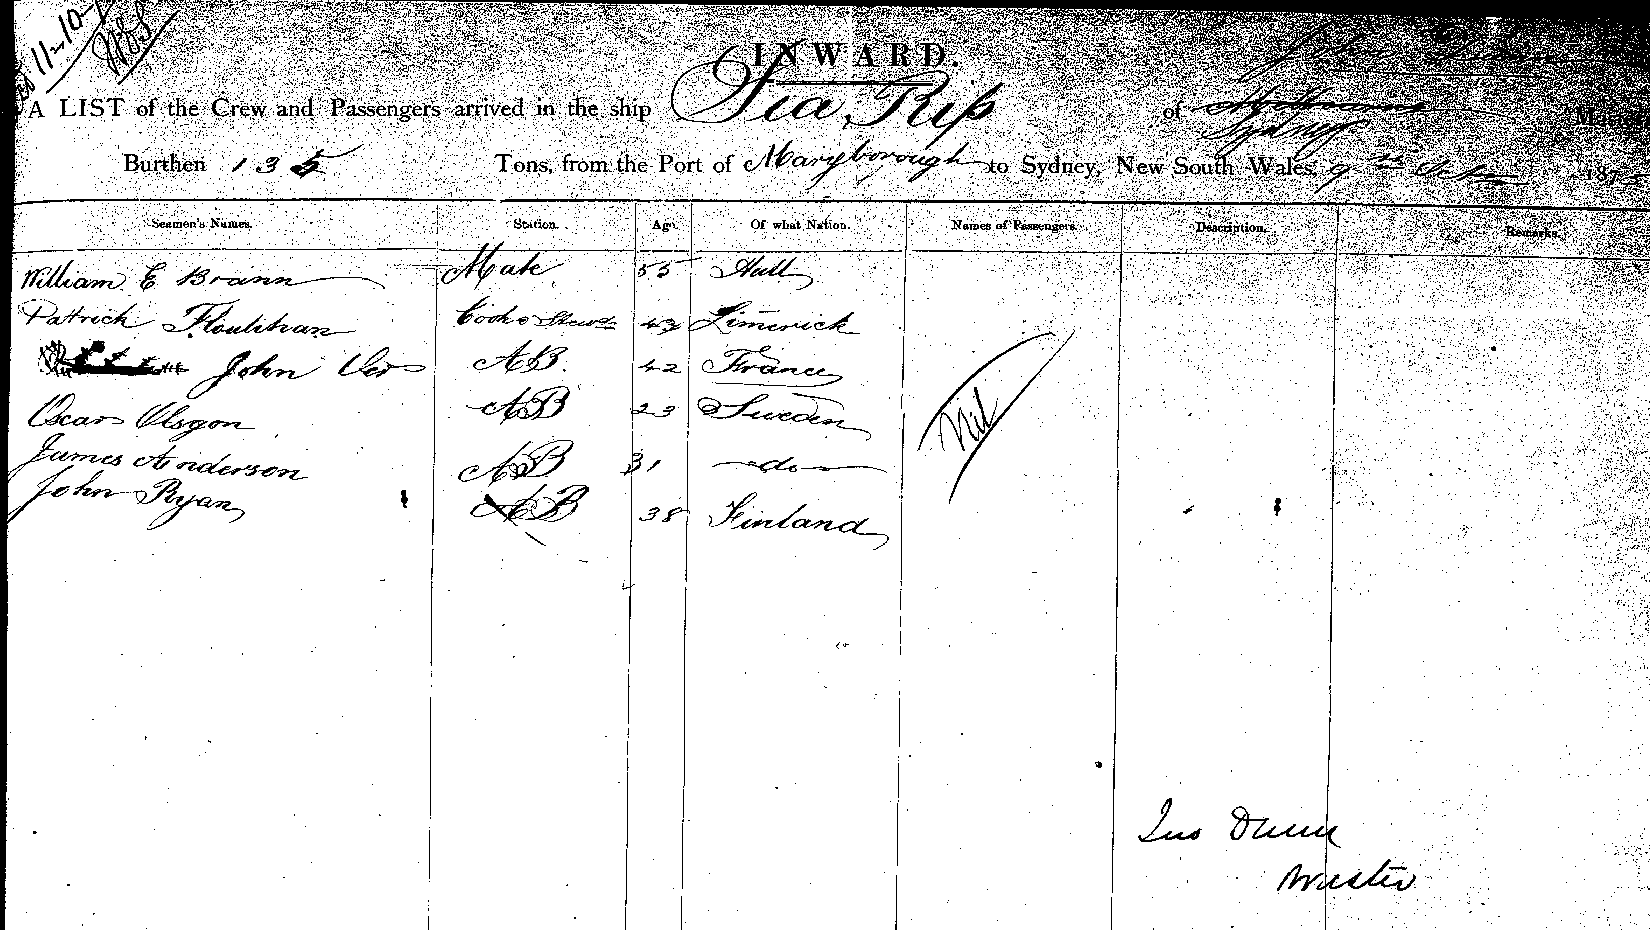 11-10-
INWARD.
A LIST of the Crew and Passengers arrived in the ship Sea Rip of Sydney
Burthen 135 Tons, from the Port of Maryborough to Sydney, New South Wales, 9th 187
Seamen's Names. Station. Age. Of what Nation. Names of Passengers. Description. Remarks.
William E Brann Mate 55 Hull
Patrick Houlihan Cook & Stewd 43 Limerick
John AB. 42 France
Oscar Olsgon AB 23 Sweden
James Anderson AB 31 do
John Ryan AB 38 Finland
Nil
Jno Dunn
Master